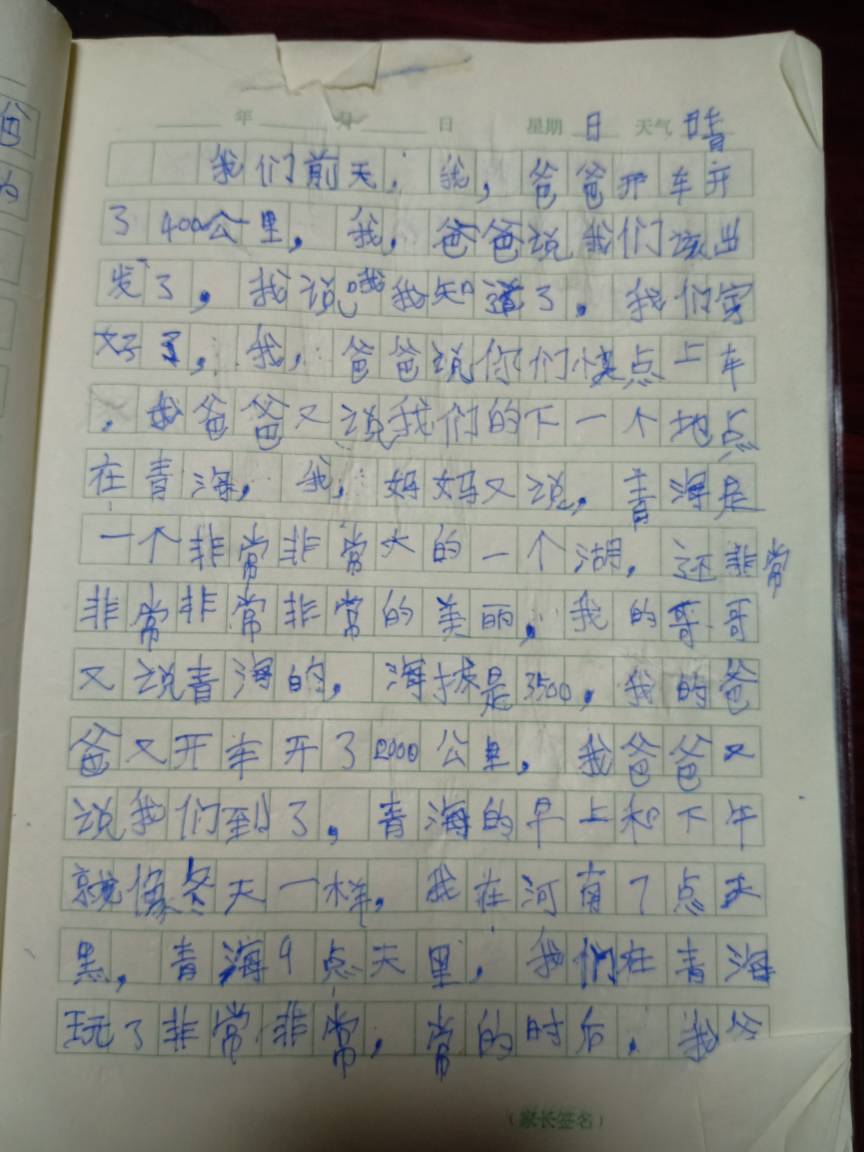 年 月 日 星期 日 天气 晴
我们前天，我，爸爸开车开
了400公里，我，爸爸说我们该出
发了，我说哦我知道了。我们穿
好了，我，爸爸说你们快点上车
，我爸爸又说我们的下一个地点
在青海，我，妈妈又说，青海是
一个非常非常大的一个湖，还非常
非常非常非常的美丽，我的哥哥
又说青海的，海拔是3500，我的爸
爸又开车开了2000公里，我爸爸又
说我们到了，青海的早上和下午
就像冬天一样，我在河南7点天
黑，青海9点天里，我们在青海
玩了非常非常，常的时后，我爷
（家长签名）